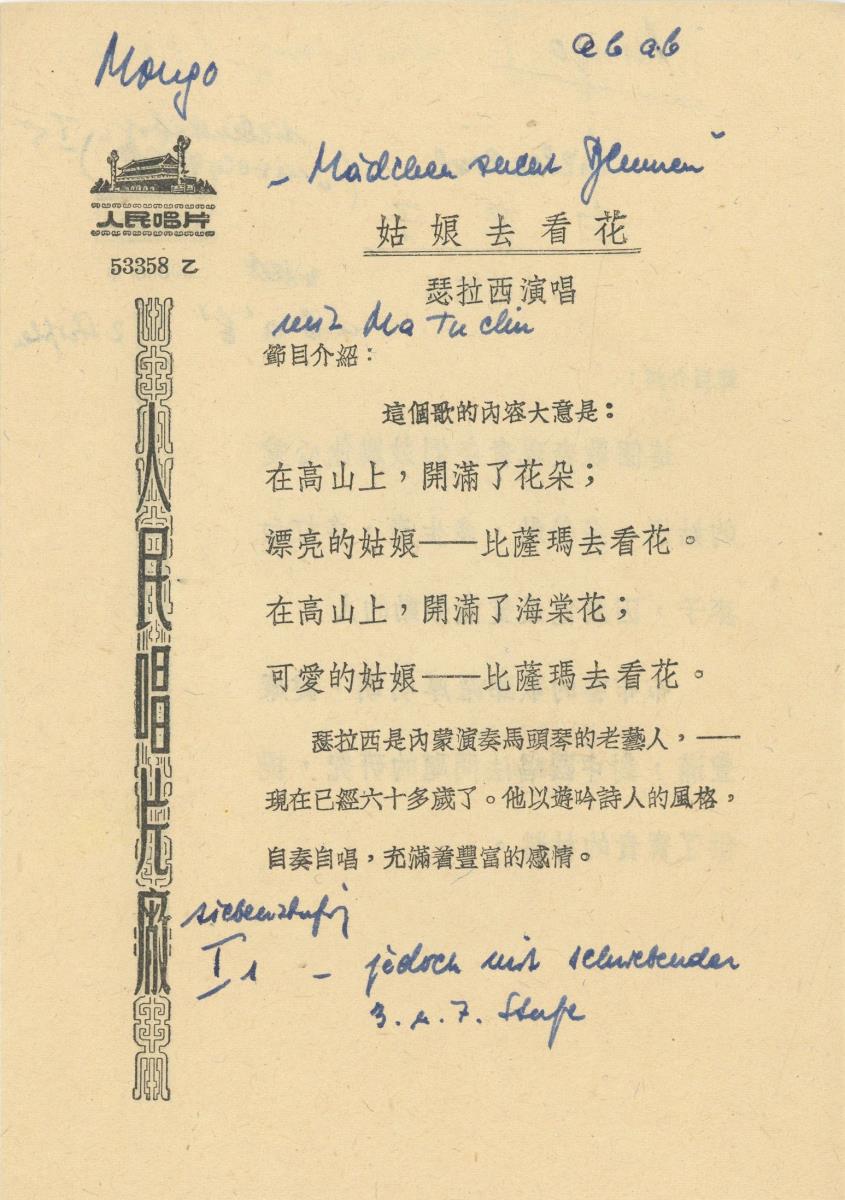 Mongo
ab ab
„Mädchen sucht Blumen“
人民唱片
53358 乙
姑娘去看花
瑟拉西演唱
mit Ma Tu chin
節目介紹：
這個歌的內容大意是：
在高山上，開滿了花朵；
漂亮的姑娘——比薩瑪去看花。
在高山上，開滿了海棠花；
可愛的姑娘——比薩瑪去看花。
瑟拉西是內蒙演奏馬頭琴的老藝人，——
現在已經六十多歲了。他以遊吟詩人的風格，
自奏自唱，充滿着豐富的感情。
人民唱片廠
siebenstufig
I 1 – jedoch mit schwebender
3. u. 7. Stufe